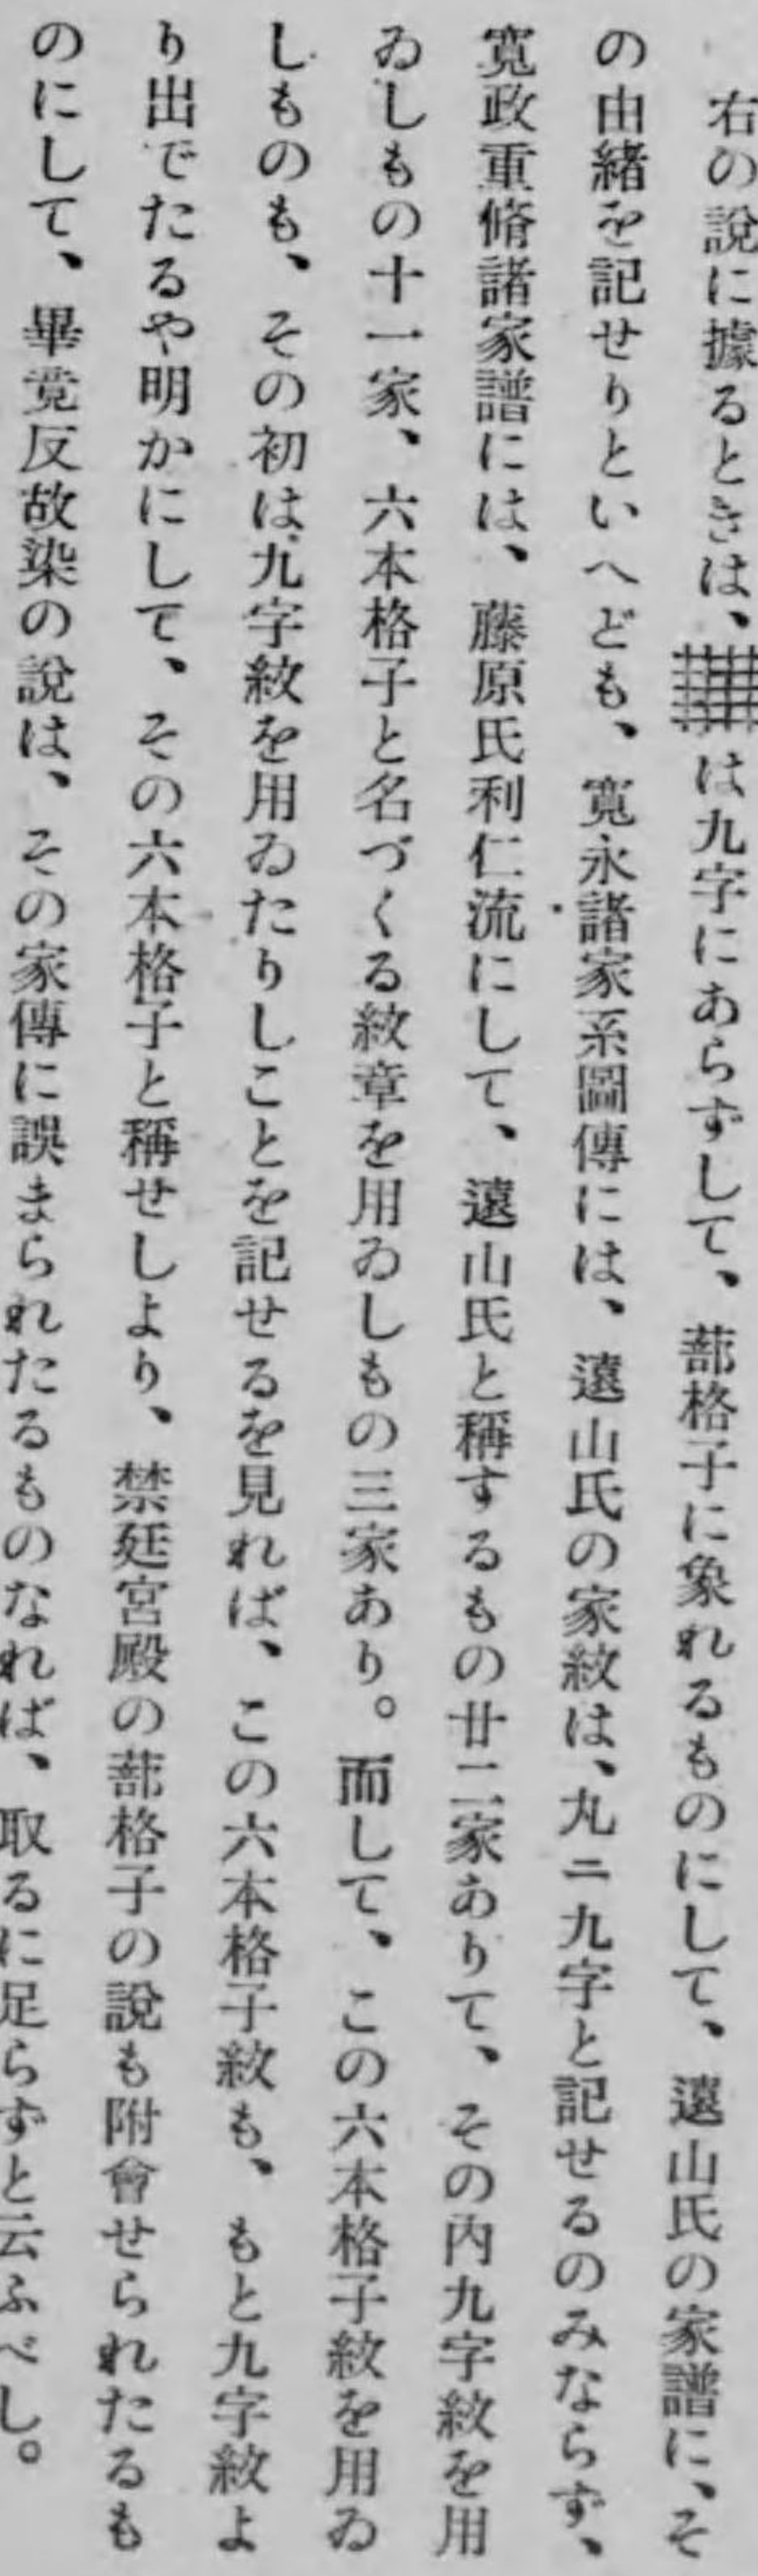 右の說に據るときは、は九字にあらずして、蔀格子に象れるものにして、遠山氏の家譜に、そ
の由緖を記せりといへども、寬永諸家系圖傳には、遠山氏の家紋は、丸ニ九字と記せるのみならず、
寬政重脩諸家譜には、藤原氏利仁流にして、遠山氏と稱するもの廿二家ありて、その內九字紋を用
ゐしもの十一家、六本格子と名づくる紋章を用ゐしもの三家あり。而して、この六本格子紋を用ゐ
しものも、その初は九字紋を用ゐたりしことを記せるを見れば、この六本格子紋も、もと九字紋よ
り出でたるや明かにして、その六本格子と稱せしより、禁廷宮殿の蔀格子の說も附會せられたるも
のにして、畢竟反故染の說は、その家傳に誤まられたるものなれば、取るに足らずと云ふべし。